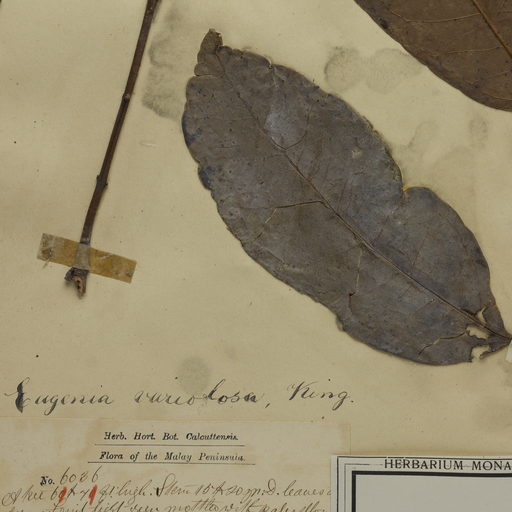 Eugenia variolosa, King.
Herb. Hort. Bot. Calcuttensis.
Flora of the Malay Peninsula.
No. 6086
high. Stem 15 to 20 leaves
light very
HERBARIUM MONA